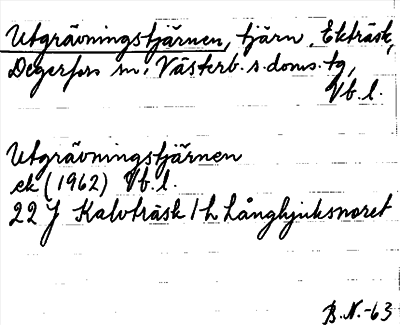 Utgrävningstjärnen, tjärn, Ekträsk,
Degerfors sn, Västerb. s. doms. tg,
Vb. l.
Utgrävningstjärnen
ek (1962) Vb. l.
22 J Kalvträsk 1 h Långhjuksnoret
B.N.-63